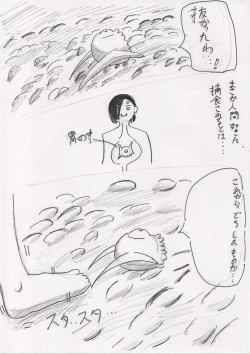 抜かれた
わ…!!
まさか人間なんかに
捕食されるとは…
胃の中
これから
どうしたものか…
スタ…スタ…